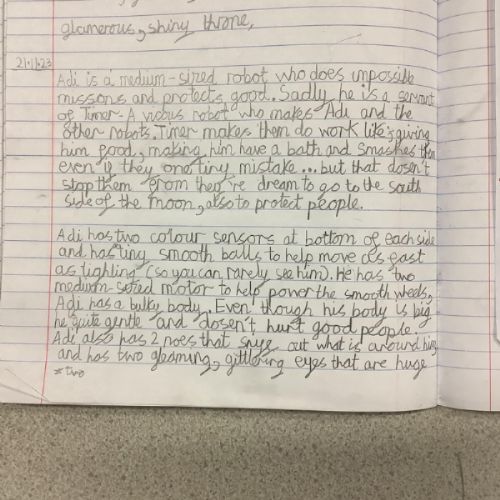 glamerous, shiny throne,
21.11.23
Adi is a medium-sized robot who does impossible
missons and protects good. Sadly, he is a servant
of Timer-A vicious robot who makes Adi and the
other robots. Timer makes them do work like; giving
him food, making him have a bath and smashes them
even if they one tiny mistake... but that dosen't
stop them from they're dream to go to the south
side of the moon, also to protect people.
Adi has two colour sensors at bottom of each side
and has tiny smooth balls to help move as fast
as lighting (so you can rarely see him). He has two
medium-sized motor to help power the smooth wheels,
Adi has a bulky body. Even though his body is big
he quite gentle and dosen't hurt good people.
Adi also has 2 noes that out what is around him
and has two gleaming, glittering eyes that are huge
* two